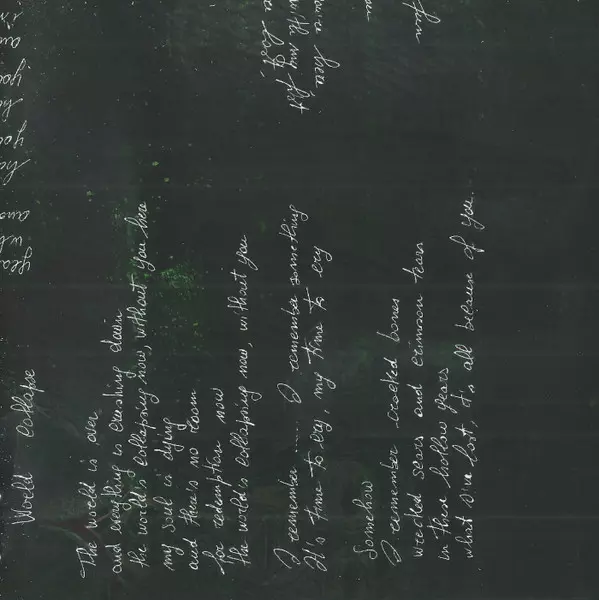 World collapse
The world is over
and everything is crushing down
the world's collapsing now, without you here
my soul is dying
and there's no room
for redemption now
the world's collapsing now, without you
I remember .... I remember something
It's time to cry, my time to cry
Somehow
I remember cracked bones
wrecked scars and crimson tears
in these hollow years
what I've lost, it's all because of you.